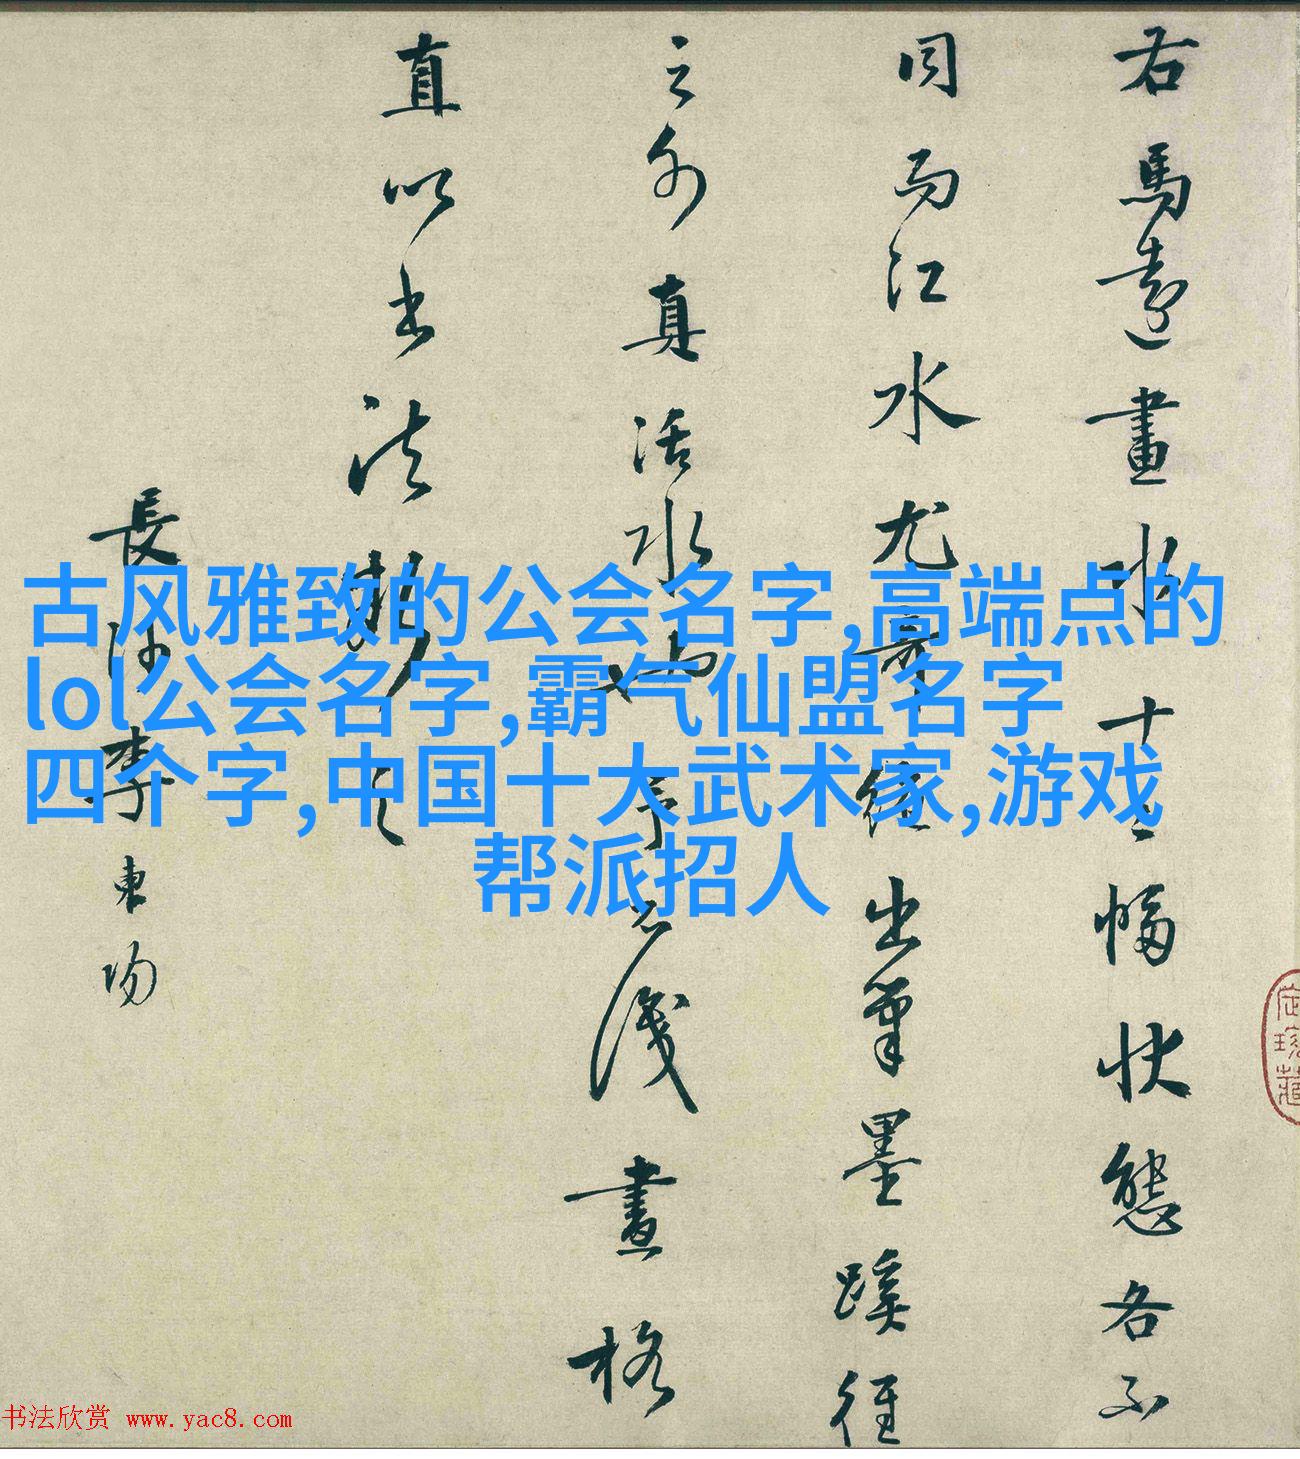 右馬遠畫水十二幅狀態各不
同而江水尤奇絕出筆墨蹊徑
之外真活水也予不識畫格
直以書法觀之
長沙李東陽
古风雅致的公会名字,高端点的
lol公会名字,霸气仙盟名字
四个字,中国十大武术家,游戏
帮派招人
书法欣赏 www.yac8.com